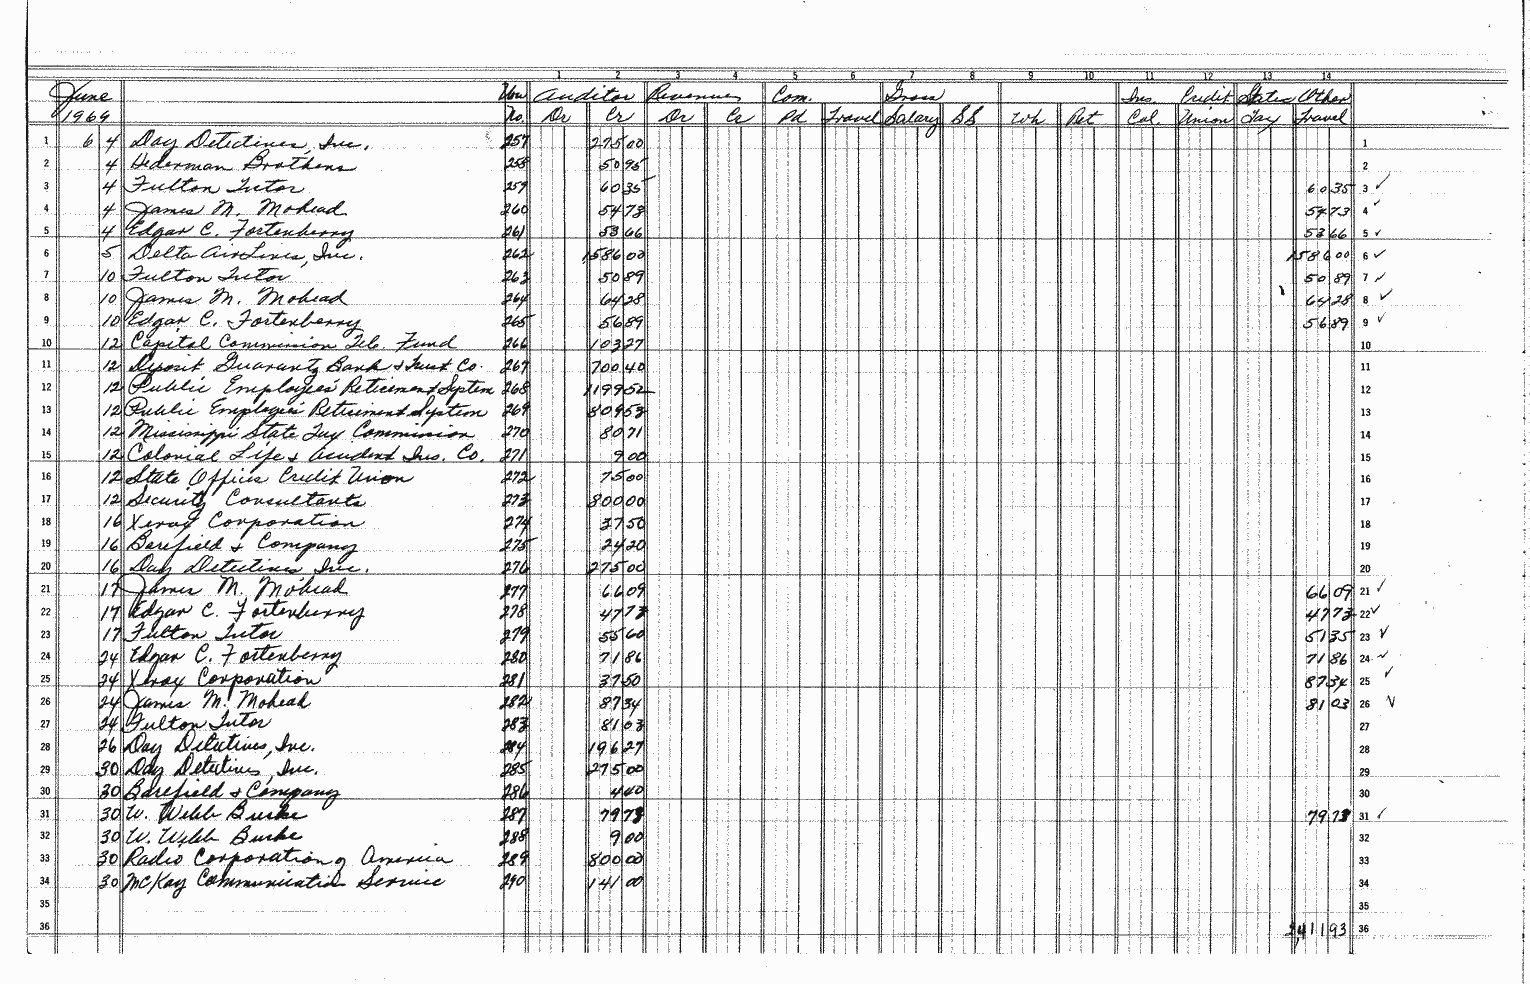 1 2 3 4 5 6 7 8 9 10 11 12 13 14
June Vou Auditor Revenues Com. Gross Ins. Credit States Other
1969 No. Dr Cr Dr Cr Pd Travel Salary SS Wh Ret Col. Union Tax Travel
1 6 4 Day Detectives, Inc. 257 275 00 1
2 4 Hederman Brothers 258 50 95 2
3 4 Fulton Tutor 259 60 35 60 35 3 ✓
4 4 James M. Mohead 260 54 73 54 73 4 ✓
5 4 Edgar C. Fortenberry 261 53 66 53 66 5 ✓
6 5 Delta Air Lines, Inc. 262 1586 00 1586 00 6 ✓
7 10 Fulton Tutor 263 50 89 50 89 7 ✓
8 10 James M. Mohead 264 64 28 64 28 8 ✓
9 10 Edgar C. Fortenberry 265 56 89 56 89 9 ✓
10 12 Capitol Commission Tele. Fund 266 103 27 10
11 12 Deposit Guaranty Bank & Trust Co. 267 700 40 11
12 12 Public Employees' Retirement System 268 1199 52 12
13 12 Public Employees' Retirement System 269 809 53 13
14 12 Mississippi State Tax Commission 270 80 71 14
15 12 Colonial Life & Accident Ins. Co. 271 9 00 15
16 12 State Offices Credit Union 272 75 00 16
17 12 Security Consultants 273 800 00 17
18 16 Xerox Corporation 274 37 50 18
19 16 Barefield & Company 275 24 20 19
20 16 Day Detectives Inc. 276 275 00 20
21 17 James M. Mohead 277 66 09 66 09 21 ✓
22 17 Edgar C. Fortenberry 278 47 73 47 73 22 ✓
23 17 Fulton Tutor 279 55 60 51 35 23 ✓
24 24 Edgar C. Fortenberry 280 71 86 71 86 24 ✓
25 24 Xerox Corporation 281 37 50 87 34 25 ✓
26 24 James M. Mohead 282 87 34 81 03 26 ✓
27 24 Fulton Tutor 283 81 03 27
28 26 Day Detectives, Inc. 284 196 27 28
29 30 Day Detectives, Inc. 285 275 00 29
30 30 Barefield & Company 286 4 40 30
31 30 W. Webb Burke 287 79 73 79 73 31 ✓
32 30 W. Webb Burke 288 9 00 32
33 30 Radio Corporation of America 289 800 00 33
34 30 McKay Communication Service 290 141 00 34
35 35
36 2,411 93 36